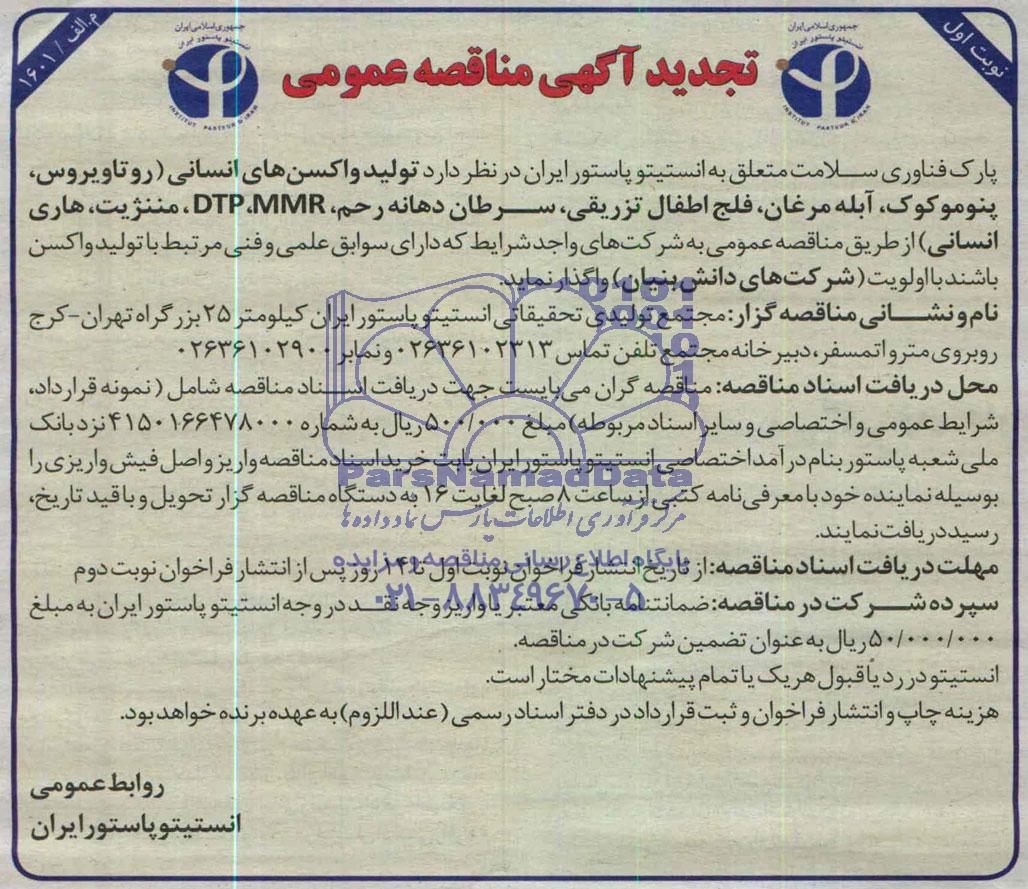 نوبت اول
م.الف / ۱۶۰۱
جمهوری اسلامی ایران
انستیتو پاستور ایران
INSTITUT PASTEUR D'IRAN
جمهوری اسلامی ایران
انستیتو پاستور ایران
INSTITUT PASTEUR D'IRAN
تجدید آگهی مناقصه عمومی
پارک فناوری سلامت متعلق به انستیتو پاستور ایران در نظر دارد تولید واکسن‌های انسانی (روتاویروس،
پنوموکوک، آبله مرغان، فلج اطفال تزریقی، سرطان دهانه رحم، DTP،MMR، مننژیت، هاری
انسانی) از طریق مناقصه عمومی به شرکت‌های واجد شرایط که دارای سوابق علمی و فنی مرتبط با تولید واکسن
باشند با اولویت (شرکت‌های دانش بنیان) واگذار نماید.
نام و نشانی مناقصه گزار: مجتمع تولیدی تحقیقاتی انستیتو پاستور ایران کیلومتر ۲۵ بزرگراه تهران-کرج
روبروی مترو اتمسفر، دبیرخانه مجتمع تلفن تماس ۰۲۶۳۶۱۰۲۳۱۳ و نمابر ۰۲۶۳۶۱۰۲۹۰۰
محل دریافت اسناد مناقصه: مناقصه گران می‌بایست جهت دریافت اسناد مناقصه شامل (نمونه قرارداد،
شرایط عمومی و اختصاصی و سایر اسناد مربوطه) مبلغ ۵۰۰/۰۰۰ ریال به شماره ۴۱۵۰۱۶۶۴۷۸۰۰۰ نزد بانک
ملی شعبه پاستور بنام درآمد اختصاصی انستیتو پاستور ایران بابت خرید اسناد مناقصه واریز و اصل فیش واریزی را
بوسیله نماینده خود با معرفی نامه کتبی از ساعت ۸ صبح لغایت ۱۶ به دستگاه مناقصه گزار تحویل و با قید تاریخ،
رسید دریافت نمایند.
مهلت دریافت اسناد مناقصه: از تاریخ انتشار فراخوان نوبت اول تا ۱۴ روز پس از انتشار فراخوان نوبت دوم
سپرده شرکت در مناقصه: ضمانتنامه بانکی معتبر یا واریز وجه نقد در وجه انستیتو پاستور ایران به مبلغ
۵۰/۰۰۰/۰۰۰ ریال به عنوان تضمین شرکت در مناقصه.
انستیتو در رد یا قبول هریک یا تمام پیشنهادات مختار است.
هزینه چاپ و انتشار فراخوان و ثبت قرارداد در دفتر اسناد رسمی (عنداللزوم) به عهده برنده خواهد بود.
روابط عمومی
انستیتو پاستور ایران
ParsNamadData
مرکز فرآوری اطلاعات پارس نماد داده ها
پایگاه اطلاع رسانی مناقصه و مزایده
۰۲۱-۸۸۳۴۹۶۷۰-۵